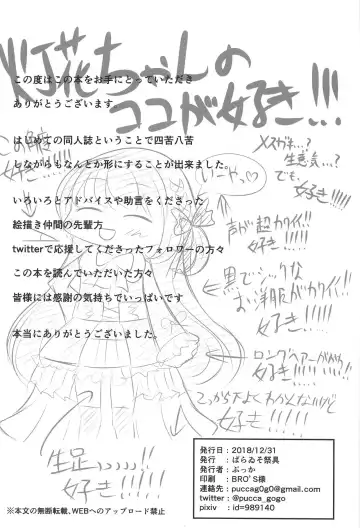 灯花ちゃんの
ココが好き!!!
この度はこの本をお手にとっていただき
ありがとうございます。
はじめての同人誌ということで四苦八苦
しながらもなんとか形にすることが出来ました。
いろいろとアドバイスや助言をくださった
絵描き仲間の先輩方
twitterで応援してくださったフォロワーの方々
この本を読んでいただいた方々
皆様には感謝の気持ちでいっぱいです
本当にありがとうございました。
この
好き!!!
いーやっ♡
メスガキ…?
生意気…?
でも、
好き!!!!
声が超カワイイ!!
好き!!!!
黒でシックな
お洋服がカワイイ
好き!!!!!
ロングヘアーがかわ
好き!!!!
ここから下よくわかんないけど
好き!!!!!
生足
好き!!!!
発行日：2018/12/31
発行：ぱらゐそ祭具
発行者：ぷっか
印刷：BRO'S様
連絡先：puccag0g0@gmail.com
twitter：@pucca_gogo
pixiv：id=989140
※本文の無断転載、WEBへのアップロード禁止